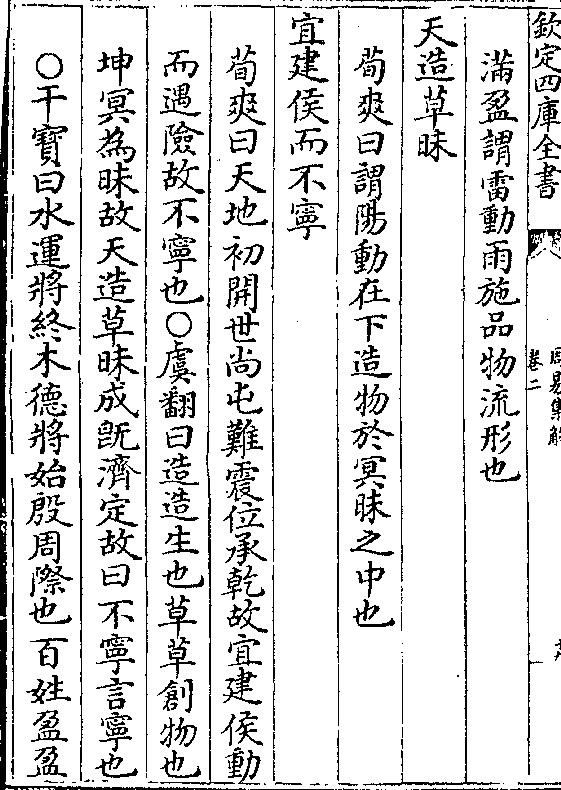 欽定四庫全書
周易集解
卷二
滿盈謂雷動雨施品物流形也
天造草昧
荀爽曰謂陽動在下造物於冥昧之中也
宜建侯而不寧
荀爽曰天地初開世尚屯難震位承乾故宜建侯動
而遇險故不寧也○虞翻曰造造生也草草創物也
坤冥為昧故天造草昧成旣濟定故曰不寧言寧也
○干寶曰水運將終木德將始殷周際也百姓盈盈